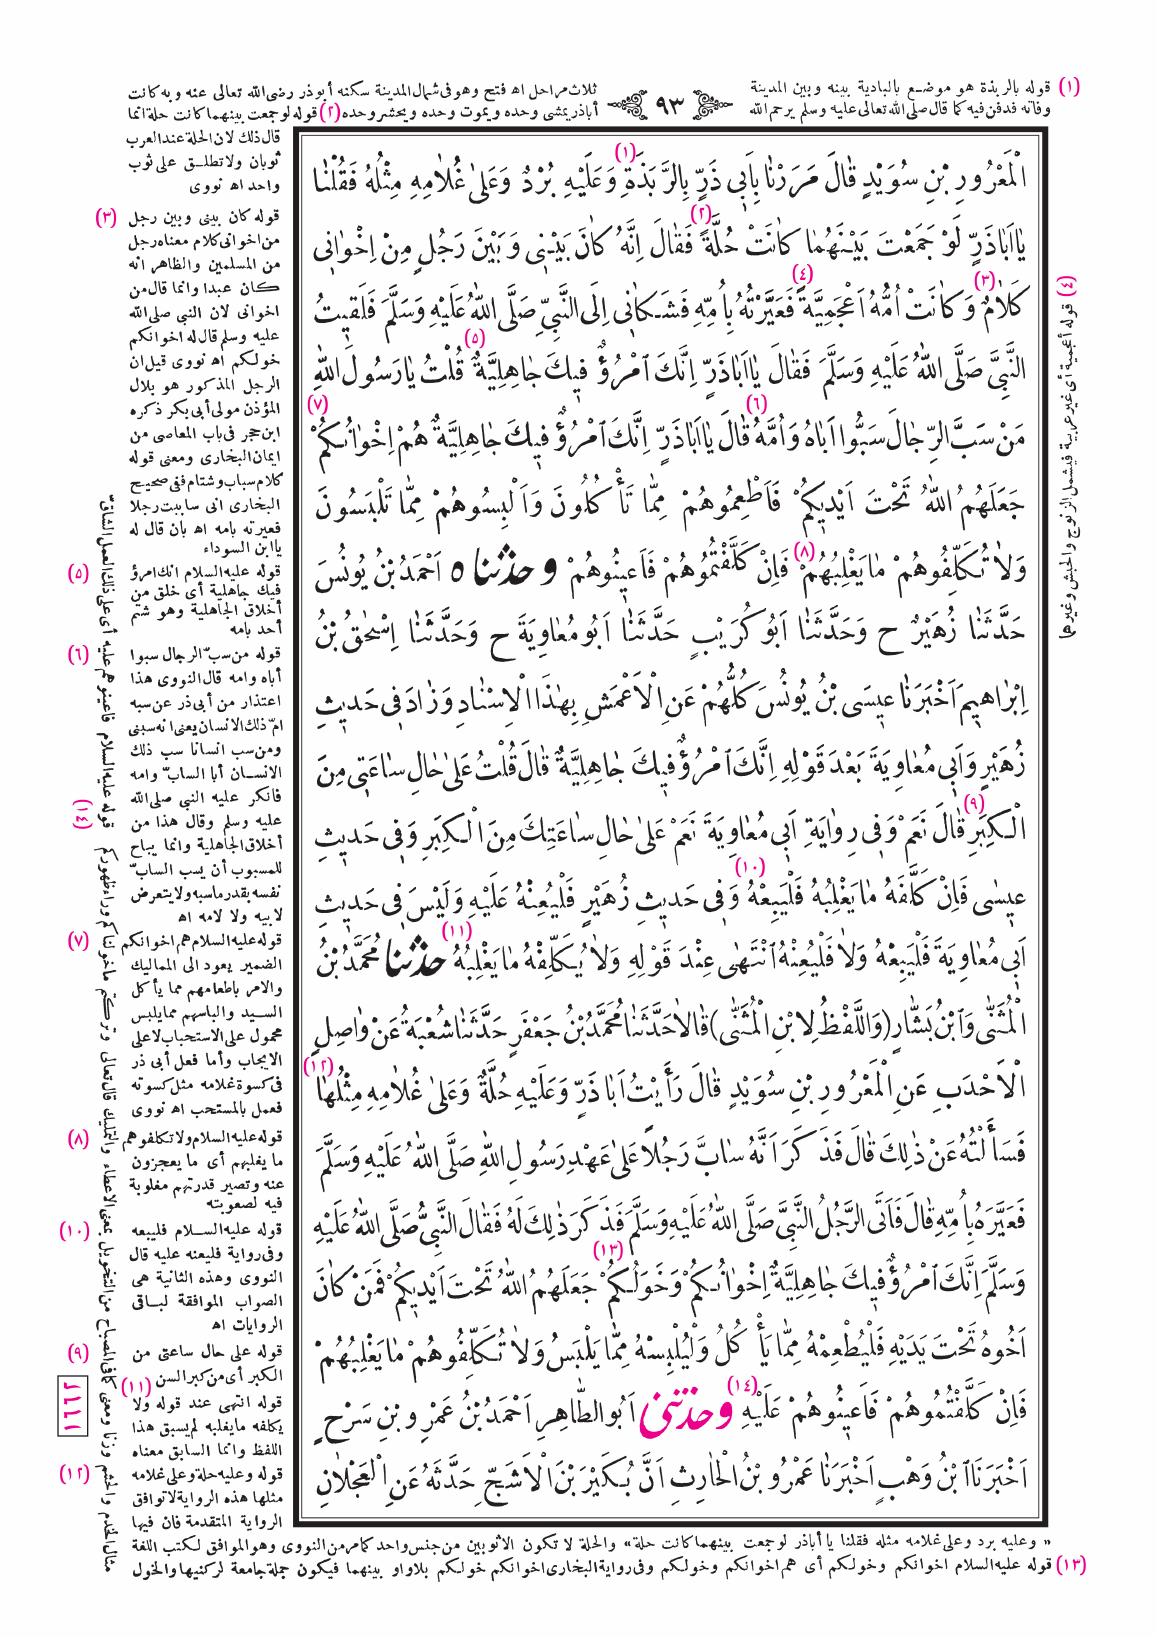 ٩٣
(١) قوله بالربذة هو موضع بالبادية بينه وبين المدينة
ثلاث مراحل اه فتح وهو فى شمال المدينة سكنه أبوذر رضى الله تعالى عنه وبه كانت
وفاته فدفن فيه كما قال صلى الله تعالى عليه وسلم يرحم الله
أباذر يمشى وحده ويموت وحده ويحشر وحده (٢) قوله لوجمعت بينهما كانت حلة انما
قال ذلك لان الحلة عند العرب
ثوبان ولا تطلق على ثوب
واحد اه نووى
الْمَعْرُورِ بْنِ سُوَيْدٍ قَالَ مَرَرْنَا بِاَبِى ذَرٍّ بِالرَّبَذَةِ (١) وَعَلَيْهِ بُرْدٌ وَعَلىٰ غُلَامِهِ مِثْلُهُ فَقُلْنَا
يَا اَبَاذَرٍّ لَوْ جَمَعْتَ بَيْنَهُمَا كَانَتْ حُلَّةً (٢) فَقَالَ اِنَّهُ كَانَ بَيْنِى وَبَيْنَ رَجُلٍ مِنْ اِخْوَانِى
كَلَامٌ (٣) وَكَانَتْ اُمُّهُ اَعْجَمِيَّةً (٤) فَعَيَّرْتُهُ بِاُمِّهِ فَشَكَانِى اِلَى النَّبِىِّ صَلَّى اللّٰهُ عَلَيْهِ وَسَلَّمَ فَلَقِيتُ
النَّبِىَّ صَلَّى اللّٰهُ عَلَيْهِ وَسَلَّمَ فَقَالَ يَا اَبَاذَرٍّ اِنَّكَ امْرُؤٌ فِيكَ جَاهِلِيَّةٌ (٥) قُلْتُ يَا رَسُولَ اللّٰهِ
مَنْ سَبَّ الرِّجَالَ سَبُّوا اَبَاهُ وَاُمَّهُ (٦) قَالَ يَا اَبَاذَرٍّ اِنَّكَ امْرُؤٌ فِيكَ جَاهِلِيَّةٌ هُمْ اِخْوَانُكُمْ (٧)
جَعَلَهُمُ اللّٰهُ تَحْتَ اَيْدِيكُمْ فَاَطْعِمُوهُمْ مِمَّا تَأْكُلُونَ وَاَلْبِسُوهُمْ مِمَّا تَلْبَسُونَ
وَلَا تُكَلِّفُوهُمْ مَا يَغْلِبُهُمْ (٨) فَاِنْ كَلَّفْتُمُوهُمْ فَاَعِينُوهُمْ وحدثناه اَحْمَدُ بْنُ يُونُسَ
حَدَّثَنَا زُهَيْرٌ ح وَحَدَّثَنَا اَبُو كُرَيْبٍ حَدَّثَنَا اَبُو مُعَاوِيَةَ ح وَحَدَّثَنَا اِسْحٰقُ بْنُ
اِبْرَاهِيمَ اَخْبَرَنَا عِيسَى بْنُ يُونُسَ كُلُّهُمْ عَنِ الْاَعْمَشِ بِهٰذَا الْاِسْنَادِ وَزَادَ فِى حَدِيثِ
زُهَيْرٍ وَاَبِى مُعَاوِيَةَ بَعْدَ قَوْلِهِ اِنَّكَ امْرُؤٌ فِيكَ جَاهِلِيَّةٌ قَالَ قُلْتُ عَلىٰ حَالِ سَاعَتِى مِنَ
الْكِبَرِ (٩) قَالَ نَعَمْ وَفِى رِوَايَةِ اَبِى مُعَاوِيَةَ نَعَمْ عَلىٰ حَالِ سَاعَتِكَ مِنَ الْكِبَرِ وَفِى حَدِيثِ
عِيسٰى فَاِنْ كَلَّفَهُ مَا يَغْلِبُهُ فَلْيَبِعْهُ (١٠) وَفِى حَدِيثِ زُهَيْرٍ فَلْيُعِنْهُ عَلَيْهِ وَلَيْسَ فِى حَدِيثِ
اَبِى مُعَاوِيَةَ فَلْيَبِعْهُ وَلَا فَلْيُعِنْهُ انْتَهٰى عِنْدَ قَوْلِهِ وَلَا يُكَلِّفْهُ مَا يَغْلِبُهُ (١١) حدثنا مُحَمَّدُ بْنُ
الْمُثَنّٰى وَابْنُ بَشَّارٍ (وَاللَّفْظُ لِابْنِ الْمُثَنّٰى) قَالَا حَدَّثَنَا مُحَمَّدُ بْنُ جَعْفَرٍ حَدَّثَنَا شُعْبَةُ عَنْ وَاصِلٍ
الْاَحْدَبِ عَنِ الْمَعْرُورِ بْنِ سُوَيْدٍ قَالَ رَأَيْتُ اَبَا ذَرٍّ وَعَلَيْهِ حُلَّةٌ وَعَلىٰ غُلَامِهِ مِثْلُهَا (١٢)
فَسَأَلْتُهُ عَنْ ذٰلِكَ قَالَ فَذَكَرَ اَنَّهُ سَابَّ رَجُلًا عَلىٰ عَهْدِ رَسُولِ اللّٰهِ صَلَّى اللّٰهُ عَلَيْهِ وَسَلَّمَ
فَعَيَّرَهُ بِاُمِّهِ قَالَ فَاَتَى الرَّجُلُ النَّبِىَّ صَلَّى اللّٰهُ عَلَيْهِ وَسَلَّمَ فَذَكَرَ ذٰلِكَ لَهُ فَقَالَ النَّبِىُّ صَلَّى اللّٰهُ عَلَيْهِ
وَسَلَّمَ اِنَّكَ امْرُؤٌ فِيكَ جَاهِلِيَّةٌ اِخْوَانُكُمْ وَخَوَلُكُمْ (١٣) جَعَلَهُمُ اللّٰهُ تَحْتَ اَيْدِيكُمْ فَمَنْ كَانَ
اَخُوهُ تَحْتَ يَدَيْهِ فَلْيُطْعِمْهُ مِمَّا يَأْكُلُ وَلْيُلْبِسْهُ مِمَّا يَلْبَسُ وَلَا تُكَلِّفُوهُمْ مَا يَغْلِبُهُمْ
فَاِنْ كَلَّفْتُمُوهُمْ فَاَعِينُوهُمْ عَلَيْهِ (١٤) وحدثنى اَبُو الطَّاهِرِ اَحْمَدُ بْنُ عَمْرِو بْنِ سَرْحٍ
اَخْبَرَنَا ابْنُ وَهْبٍ اَخْبَرَنَا عَمْرُو بْنُ الْحَارِثِ اَنَّ بُكَيْرَ بْنَ الْاَشَجِّ حَدَّثَهُ عَنِ الْعَجْلَانِ
(٣) قوله كان بينى وبين رجل
من اخوانى كلام معناه رجل
من المسلمين والظاهر انه
كان عبدا وانما قال من
اخوانى لان النبى صلى الله
عليه وسلم قال له اخوانكم
خولكم اه نووى قيل ان
الرجل المذكور هو بلال
المؤذن مولى أبى بكر ذكره
ابن حجر فى باب المعاصى من
ايمان البخارى ومعنى قوله
كلام سباب وشتام ففى صحيح
البخارى انى ساببت رجلا
فعيرته بامه اه بان قال له
يا ابن السوداء
(٥) قوله عليه السلام انك امرؤ
فيك جاهلية أى خلق من
أخلاق الجاهلية وهو شتم
أحد بامه
(٦) قوله من سبّ الرجال سبوا
أباه وامه قال النووى هذا
اعتذار من أبى ذر عن سبه
امّ ذلك الانسان يعنى انه سبنى
ومن سب انسانا سب ذلك
الانسان أبا السابّ وامه
فانكر عليه النبى صلى الله
عليه وسلم وقال هذا من
أخلاق الجاهلية وانما يباح
للمسبوب أن يسب السابّ
نفسه بقدر ما سبه ولا يتعرض
لابيه ولا لامه اه
(٧) قوله عليه السلام هم اخوانكم
الضمير يعود الى المماليك
والامر باطعامهم مما يأكل
السيد والباسهم مما يلبس
محمول على الاستحباب لا على
الايجاب وأما فعل أبى ذر
فى كسوة غلامه مثل كسوته
فعمل بالمستحب اه نووى
(٨) قوله عليه السلام ولا تكلفوهم
ما يغلبهم أى ما يعجزون
عنه وتصير قدرتهم مغلوبة
فيه لصعوبته
(١٠) قوله عليه السلام فليبعه
وفى رواية فليعنه عليه قال
النووى وهذه الثانية هى
الصواب الموافقة لباقى
الروايات اه
(٩) قوله على حال ساعتى من
الكبر أى من كبر السن
(١١) قوله انتهى عند قوله ولا
يكلفه ما يغلبه لم يسبق هذا
اللفظ وانما السابق معناه
(١٢) قوله وعليه حلة وعلى غلامه
مثلها هذه الرواية لا توافق
الرواية المتقدمة فان فيها
« وعليه برد وعلى غلامه مثله فقلنا يا أباذر لو جمعت بينهما كانت حلة » والحلة لا تكون الا ثوبين من جنس واحد كما مر من النووى وهو الموافق لكتب اللغة
(١٣) قوله عليه السلام اخوانكم وخولكم أى هم اخوانكم وخولكم وفى رواية البخارى اخوانكم خولكم بلا واو بينهما فيكون جملة جامعة لركنيها والخول
مثال الخدم والحشم وزنا ومعنى كما فى المصباح من التخويل بمعنى الاعطاء والتمليك قال تعالى وتركتم ما خولناكم وراء ظهوركم (١٤) قوله عليه السلام فاعينوهم عليه أى على ذلك العمل الشاقّ
(٤) قوله أعجمية أى غير عربية فيشمل الزنوج والحبش وغيرهما
١٦٦١